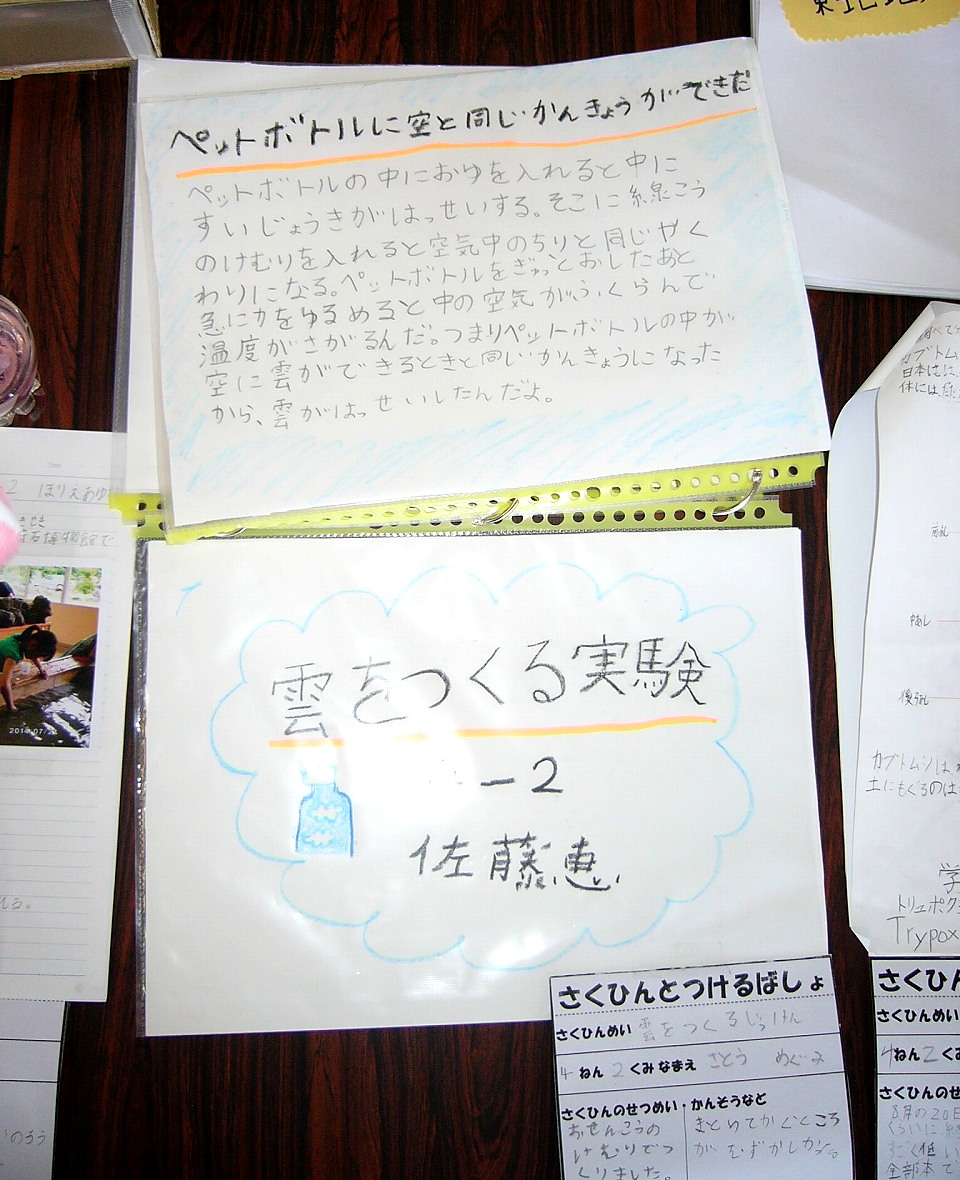 ペットボトルに空と同じかんきょうができだ
ペットボトルの中におゆを入れると中に
すいじょうきがはっせいする。そこに線こう
のけむりを入れると空気中のちりと同じやく
わりになる。ペットボトルをぎゅっとおしたあと
急に力をゆるめると中の空気がふくらんで
温度がさがるんだ。つまりペットボトルの中が
空に雲ができるときと同じかんきょうになった
から、雲がはっせいしたんだよ。
雲をつくる実験
-2
佐藤恵
さくひんとつけるばしょ
さくひんめい 雲をつくるじっけん
4ねん2くみなまえ さとう めぐみ
さくひんのせつめい・かんそうなど
おせんこうの
けむりでつ
くりました。
まとめてかくところ
がむずかしかった
2 ほりえあゆ
博物館で
カブトムシ
日本
体には
中あし
後ろあし
カブトムシは
土にもぐるのは
学
トリュポク
Trypox
さくひん
さくひんめい
4ねん2く
さくひんのせ
8月の20日
くらいに
すごく低い
全部本で